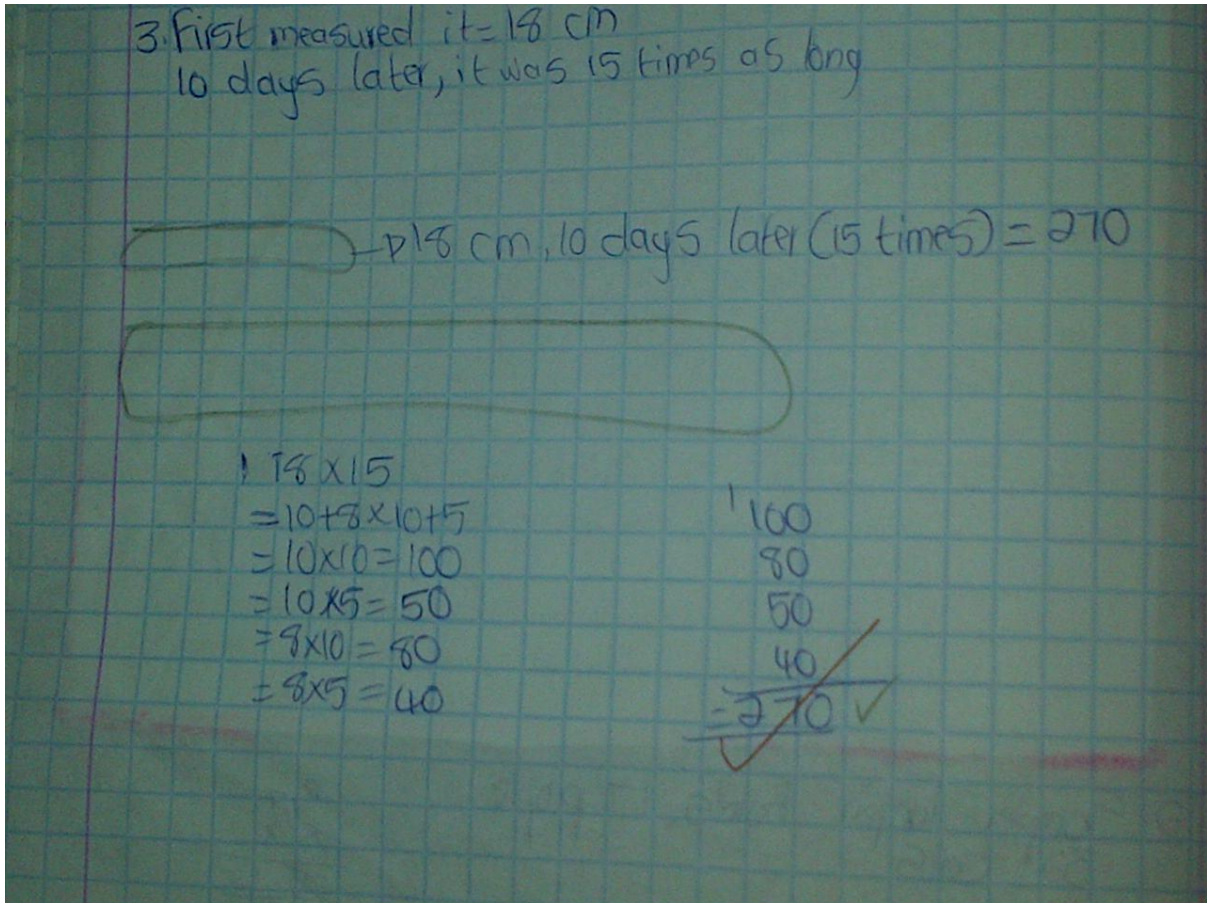 3. First measured it = 18 cm
10 days later, it was 15 times as long
18 cm, 10 days later (15 times) = 270
18 x 15
= 10+8x10+5
= 10x10 = 100
= 10x5 = 50
= 8x10 = 80
= 8x5 = 40
1 100
80
50
40
= 270